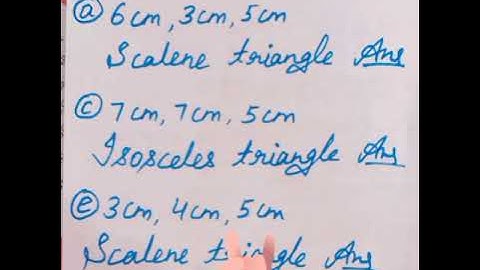 ⓐ 6cm, 3cm, 5cm
Scalene triangle Ans
ⓒ 7cm, 7cm, 5cm
Isosceles triangle Ans
ⓔ 3cm, 4cm, 5cm
Scalene triangle Ans